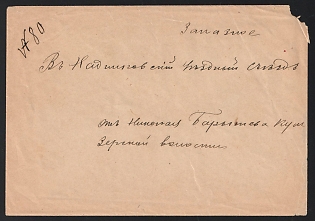 № 80
Заказное
Въ Кадниковскій Уѣздный Съѣздъ
отъ Николая Барышева Кум
зерской волости